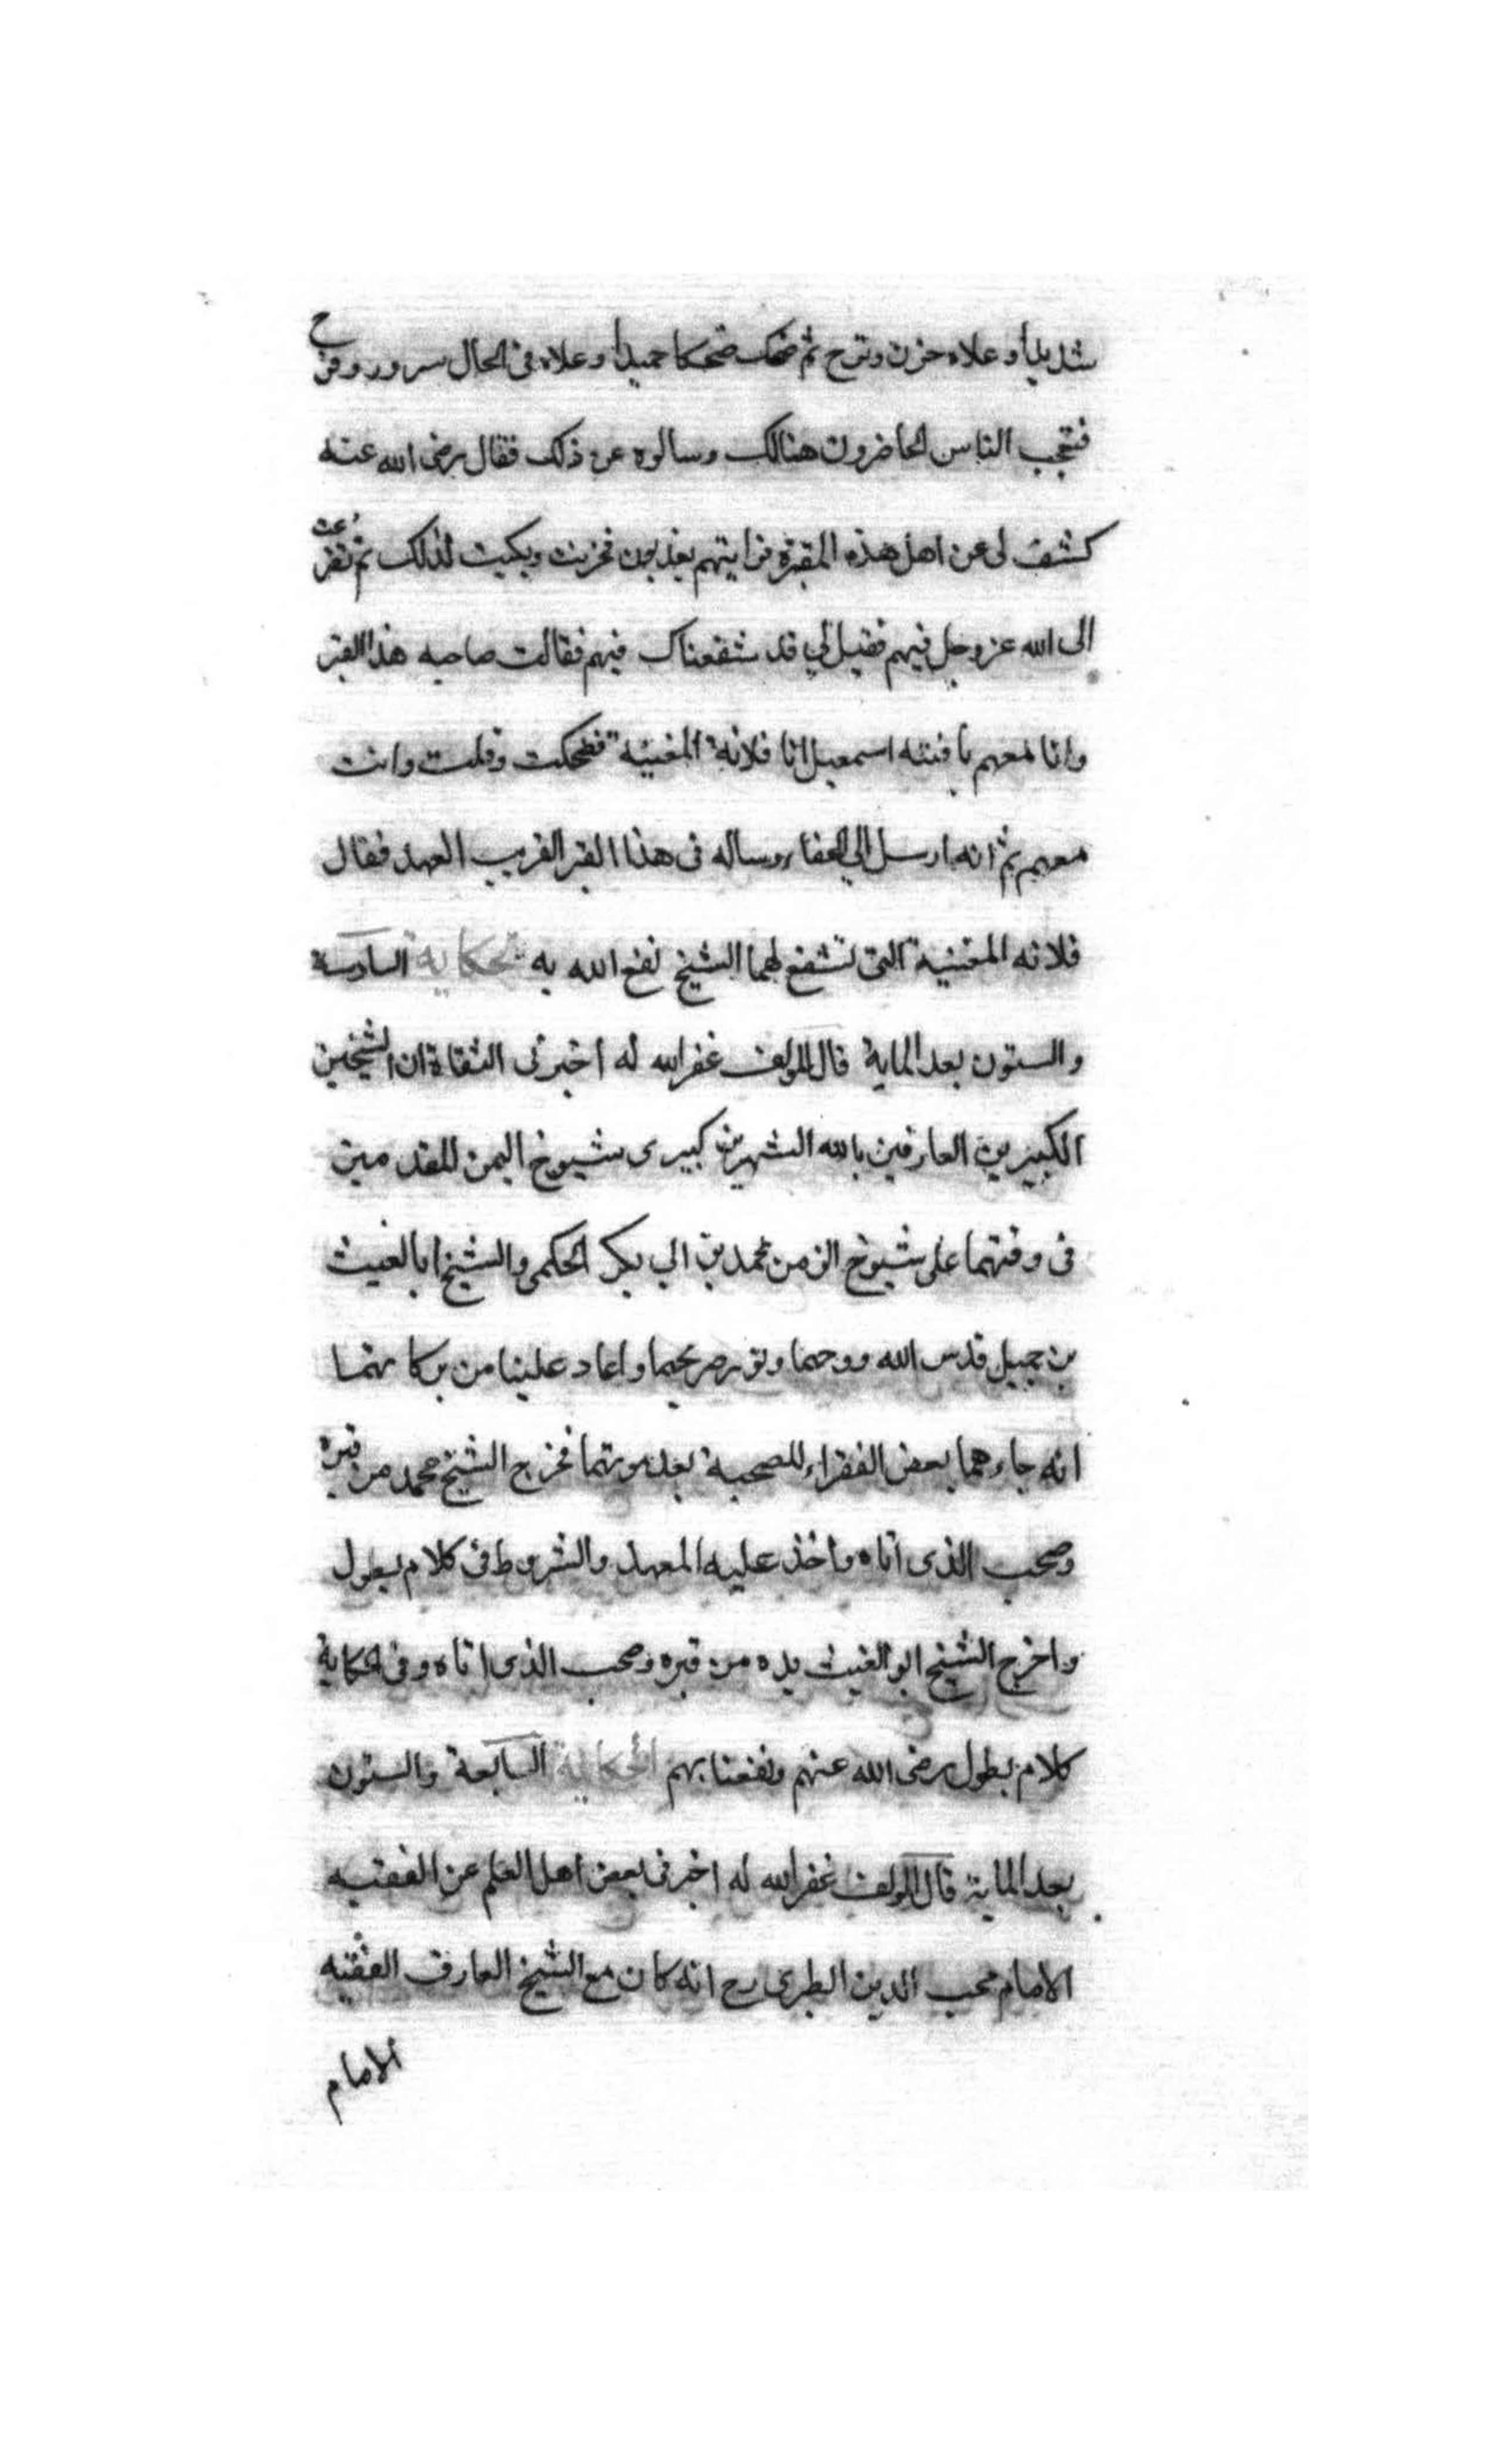 شديدا وعلاه حزن وترح ثم ضحك ضحكا حميدا وعلاه فى الحال سرور وفرح
فتعجب الناس الحاضرون هنالك وسالوه عن ذلك فقال رضى الله عنه
كشف لى عن اهل هذه المقبرة فرايتهم يعذبون فحزنت وبكيت لذلك ثم تضرعت
الى الله عز وجل فيهم فقيل لي قد شفعناك فيهم فقالت صاحبه هذا القبر
وانا معهم يا فقيه اسمعيل انا فلانة المغنية فضحكت وقلت وانت
معهم ثم انه ارسل الي الحفار وساله فى هذا القبر القريب العهد فقال
فلانه المغنية التى تشفع لها الشيخ نفع الله به الحكاية السادسة
والستون بعد الماية قال المولف غفر الله له اخبرنى الثقاة ان الشيخين
الكبيرين العارفين بالله الشهيرين كبيرى شيوخ اليمن المقدمين
فى وقتهما على شيوخ الزمن محمد بن ابي بكر الحكمى والشيخ ابا الغيث
بن جميل قدس الله روحهما ونور ضريحهما واعاد علينا من بركاتهما
انه جاءهما بعض الفقراء للصحبة بعد موتهما فخرج الشيخ محمد من قبره
وصحب الذى اتاه واخذ عليه العهد والشروط فى كلام يطول
واخرج الشيخ ابو الغيث يده من قبره وصحب الذى اتاه وفى الحكاية
كلام يطول رضى الله عنهم ونفعنا بهم الحكاية السابعة والستون
بعد الماية قال المولف غفر الله له اخبرنى بعض اهل العلم عن الفقيه
الامام محب الدين الطبرى رح انه كان مع الشيخ العارف الفقيه
الامام